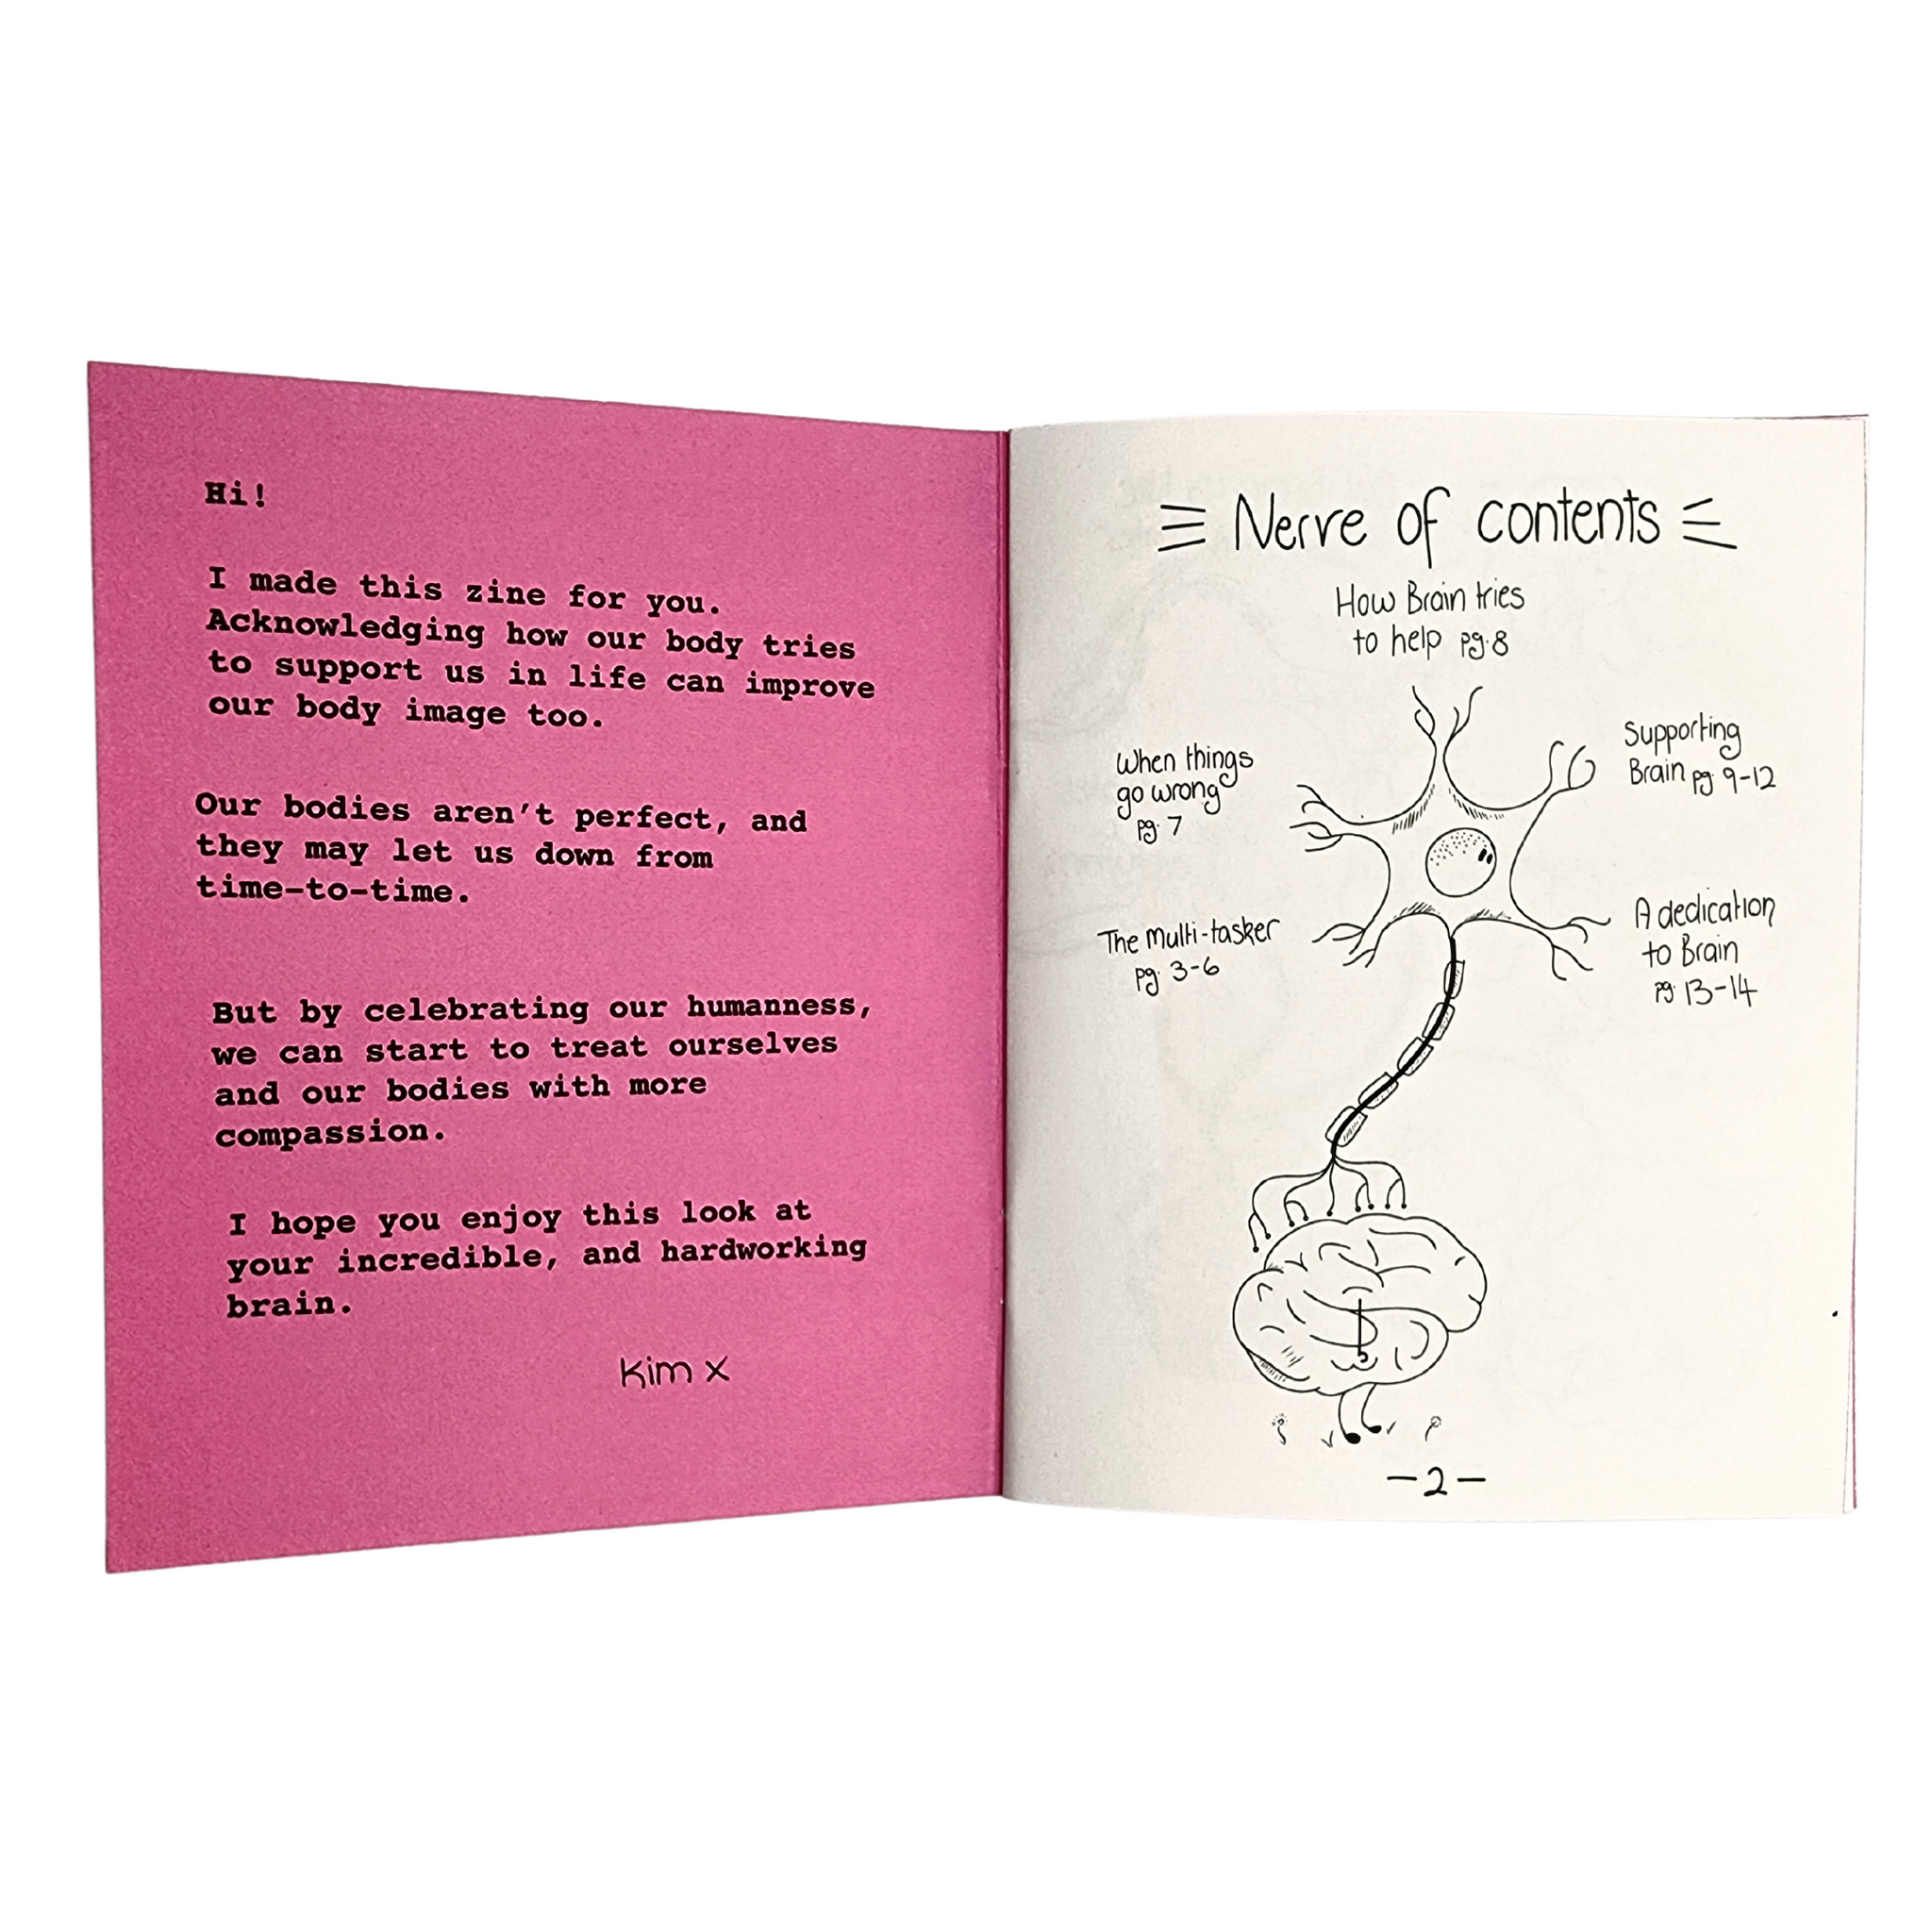 Hi!
I made this zine for you.
Acknowledging how our body tries
to support us in life can improve
our body image too.
Our bodies aren't perfect, and
they may let us down from
time-to-time.
But by celebrating our humanness,
we can start to treat ourselves
and our bodies with more
compassion.
I hope you enjoy this look at
your incredible, and hardworking
brain.
Kim x
Nerve of contents
How Brain tries
to help pg. 8
When things
go wrong
pg. 7
Supporting
Brain pg. 9-12
The Multi-tasker
pg. 3-6
A dedication
to Brain
pg. 13-14
-2-